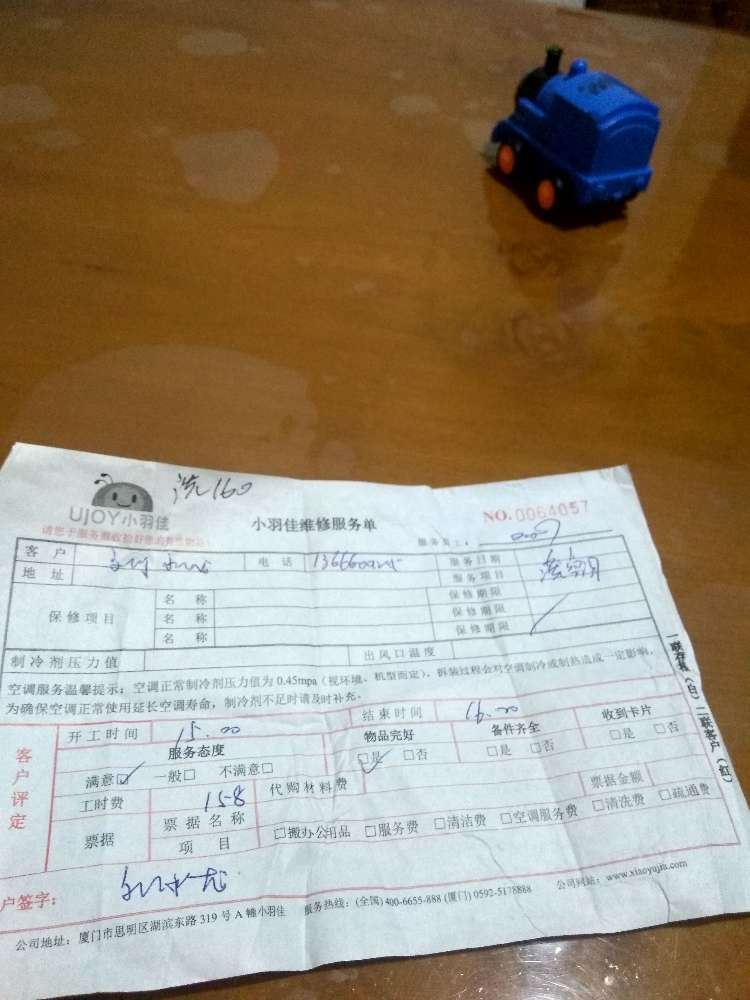 洗160
UJOY小羽佳
小羽佳维修服务单
NO.0064057
服务员工:
客户 电话 服务日期
地址 服务项目
保修项目 名称 保修期限
名称 保修期限
名称 保修期限
制冷剂压力值 出风口温度
空调服务温馨提示:空调正常制冷剂压力值为0.45mpa(视环境、机型而定),拆装过程会对空调制冷或制热造成一定影响,
为确保空调正常使用延长空调寿命,制冷剂不足时请及时补充。
一联存根(白)二联客户(红)
客户评定
开工时间 15.00 结束时间 16.00
服务态度 物品完好 备件齐全 收到卡片
满意☑ 一般□ 不满意□ ☑是 □否 □是 □否 □是 □否
工时费 158 代购材料费
票据 票据名称 票据金额
项目 □搬办公用品 □服务费 □清洁费 □空调服务费 □清洗费 □疏通费
户签字:
公司地址:厦门市思明区湖滨东路319号A幢小羽佳 服务热线:(全国)400-6655-888(厦门)0592-5178888 公司网站:www.xiaoyujia.com